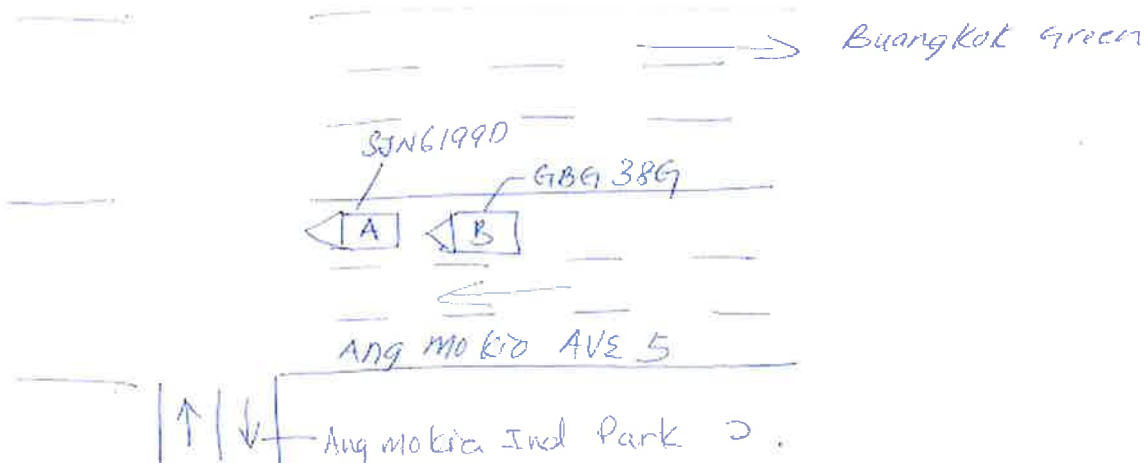 Buangkok Green
SJN6199D
GBG 38G
A B
Ang Mo Kio AVE 5
Ang mokio Ind Park 2.